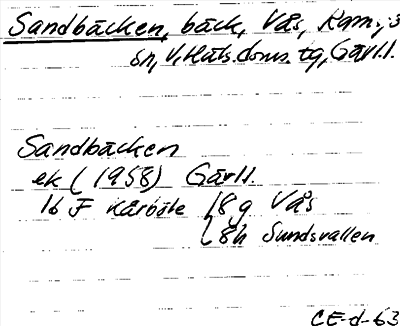 Sandbäcken, bäck, Vås,
sn, V. Häls. doms. tg, Gävl.l.
Sandbäcken
ek (1958) Gävl.l.
16 F Kårböle 8 g Vås
8h Sundsvallen
CE-d-63